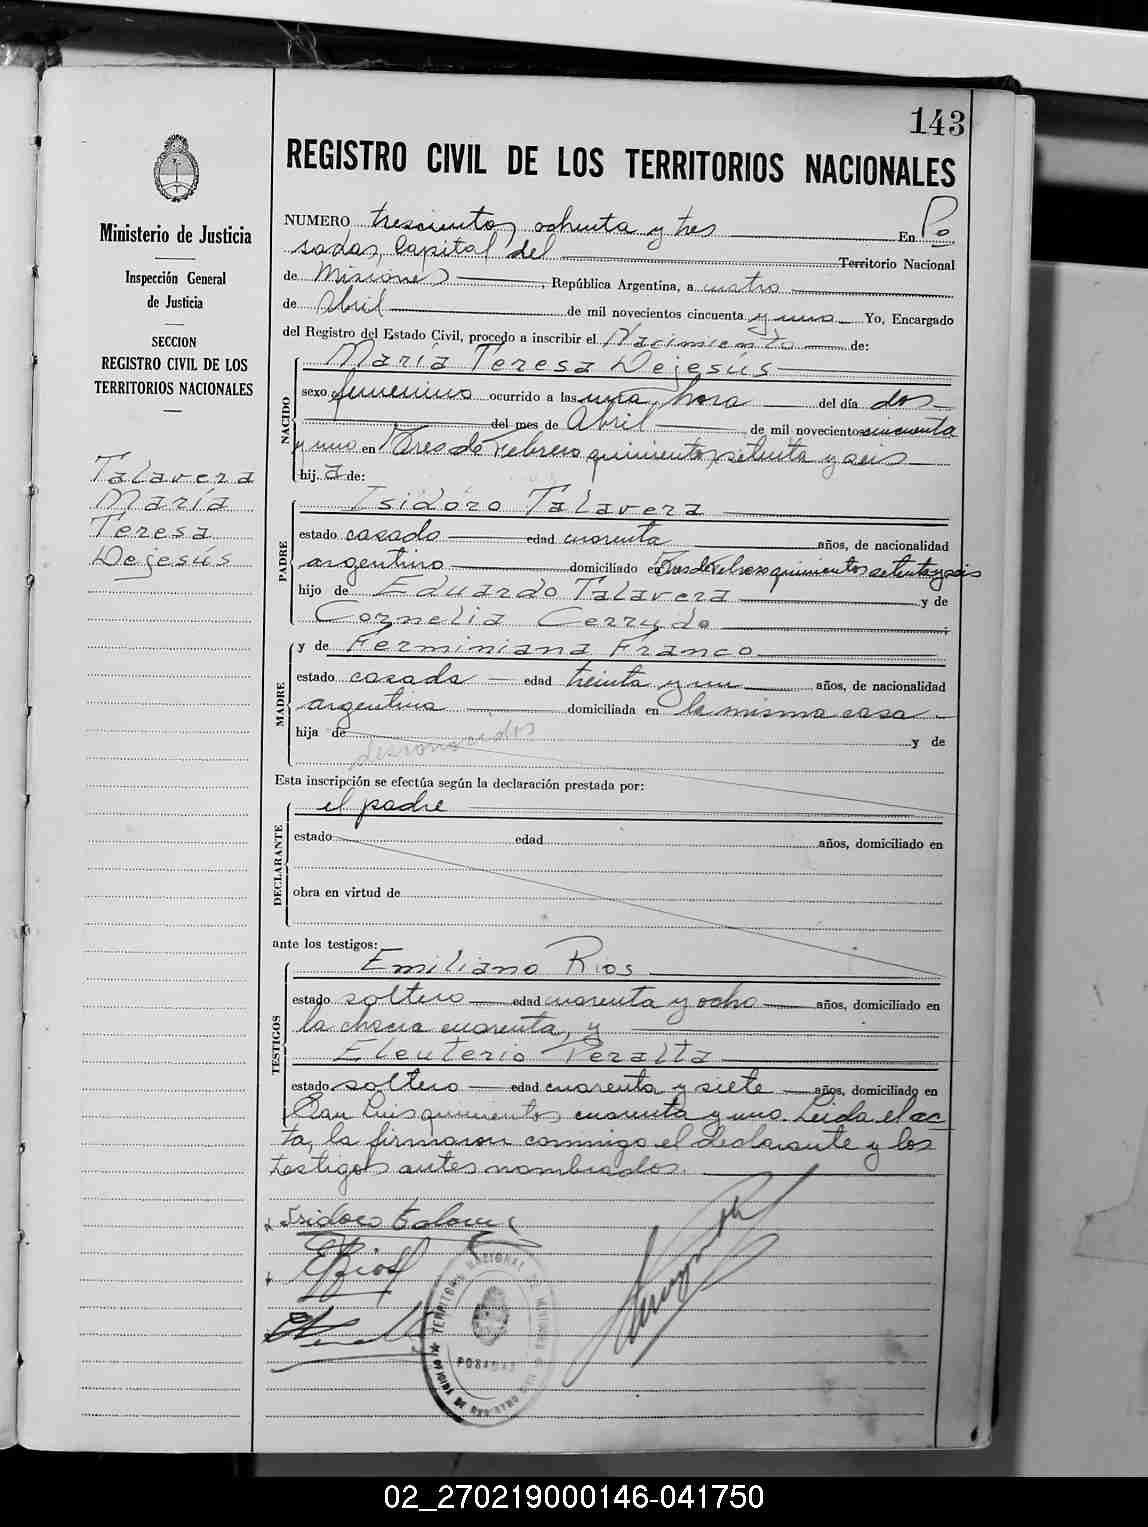 143
REGISTRO CIVIL DE LOS TERRITORIOS NACIONALES
Ministerio de Justicia
Inspección General
de Justicia
SECCION
REGISTRO CIVIL DE LOS
TERRITORIOS NACIONALES
Talavera
María
Teresa
Dejesús
NUMERO trescientos ochenta y tres En Po
sadas, Capital del Territorio Nacional
de Misiones, República Argentina, a cuatro
de Abril de mil novecientos cincuenta y uno Yo, Encargado
del Registro del Estado Civil, procedo a inscribir el Nacimiento de:
NACIDO
María Teresa Dejesús
sexo femenino ocurrido a las una hora del día dos
del mes de Abril de mil novecientos cincuenta
y uno en Tres de Febrero quinientos setenta y seis
hij a de:
PADRE
Isidoro Talavera
estado casado edad cuarenta años, de nacionalidad
argentino domiciliado en Tres de Febrero quinientos setenta y seis
hijo de Eduardo Talavera y de
Cornelia Cerrudo ;
MADRE
y de Ferminiana Franco
estado casada edad treinta y un años, de nacionalidad
argentina domiciliada en la misma casa
hija de desconocidos y de
Esta inscripción se efectúa según la declaración prestada por:
DECLARANTE
el padre
estado edad años, domiciliado en
obra en virtud de
ante los testigos:
TESTIGOS
Emiliano Rios
estado soltero edad cuarenta y ocho años, domiciliado en
la chacra cuarenta, y
Eleuterio Peralta
estado soltero edad cuarenta y siete años, domiciliado en
San Luis quinientos cuarenta y uno. Leida el ac
ta, la firmaron conmigo el declarante y los
testigos antes nombrados.
Isidoro Talavera
ERios
TERRITORIO NACIONAL DE MISIONES
POSADAS
OFICINA DE REGISTRO CIVIL
02_270219000146-041750